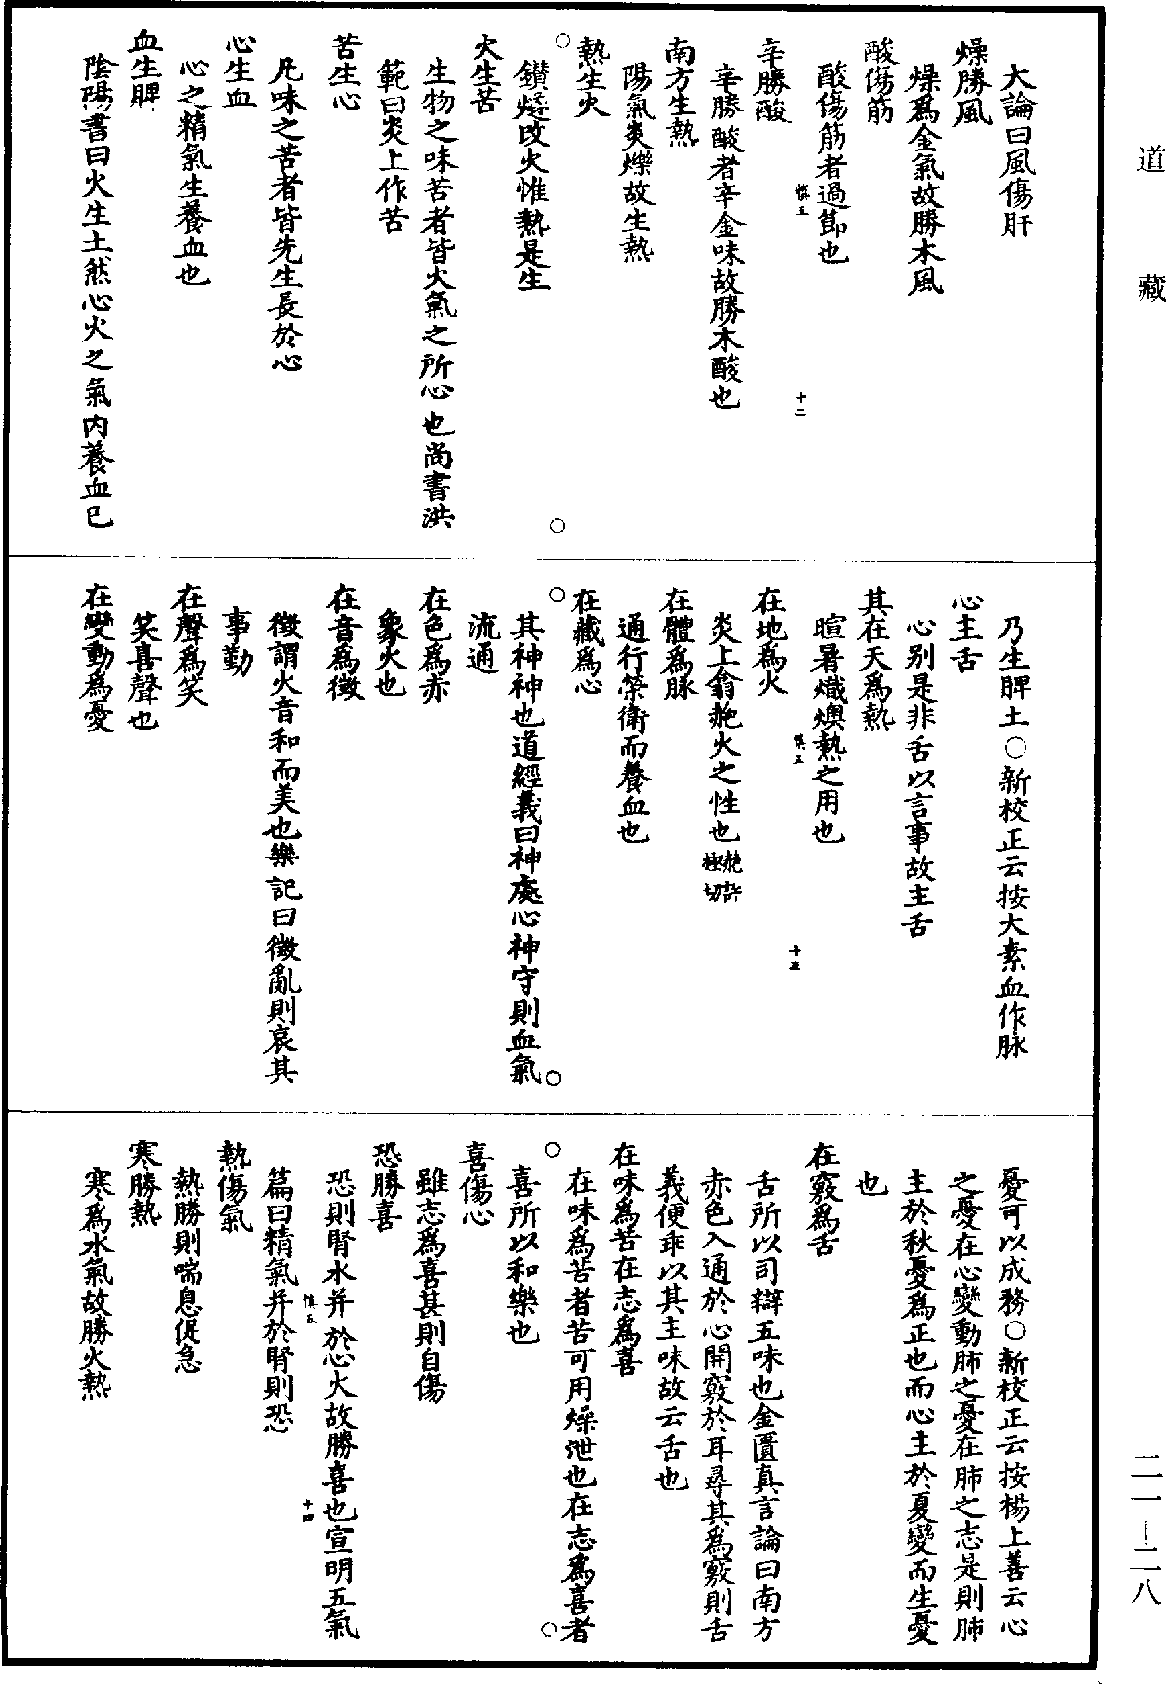 道藏
大論曰風傷肝
燥勝風
燥爲金氣故勝木風
酸傷筋
酸傷筋者過節也
慎五
十二
辛勝酸
辛勝酸者辛金味故勝木酸也
南方生熱
陽氣炎爍故生熱
熱生火
○
○
鑚燧改火惟熱是生
火生苦
生物之味苦者皆火氣之所心也尚書洪
範曰炎上作苦
苦生心
凡味之苦者皆先生長於心
心生血
心之精氣生養血也
血生脾
陰陽書曰火生土然心火之氣内養血已
乃生脾土○新校正云按大素血作脉
心主舌
心别是非舌以言事故主舌
其在天爲熱
暄暑熾燠熱之用也
慎五
十三
在地爲火
炎上翕赩火之性也赩許極切
在體爲脉
通行榮衛而養血也
在藏爲心
○
○
其神神也道經義曰神處心神守則血氣
流通
在色爲赤
象火也
在音爲徵
徵謂火音和而美也樂記曰徵亂則哀其
事勤
在聲爲笑
笑喜聲也
在變動爲憂
憂可以成務○新校正云按楊上善云心
之憂在心變動肺之憂在肺之志是則肺
主於秋憂爲正也而心主於夏變而生憂
也
在竅爲舌
舌所以司辯五味也金匱真言論曰南方
赤色入通於心開竅於耳尋其爲竅則舌
義便乖以其主味故云舌也
在味爲苦在志爲喜
在味爲苦者苦可用燥泄也在志爲喜者
○
○
喜所以和樂也
喜傷心
雖志爲喜甚則自傷
恐勝喜
恐則腎水并於心火故勝喜也宣明五氣
慎五
十四
篇曰精氣并於腎則恐
熱傷氣
熱勝則喘息促急
寒勝熱
寒爲水氣故勝火熱
二一—二八